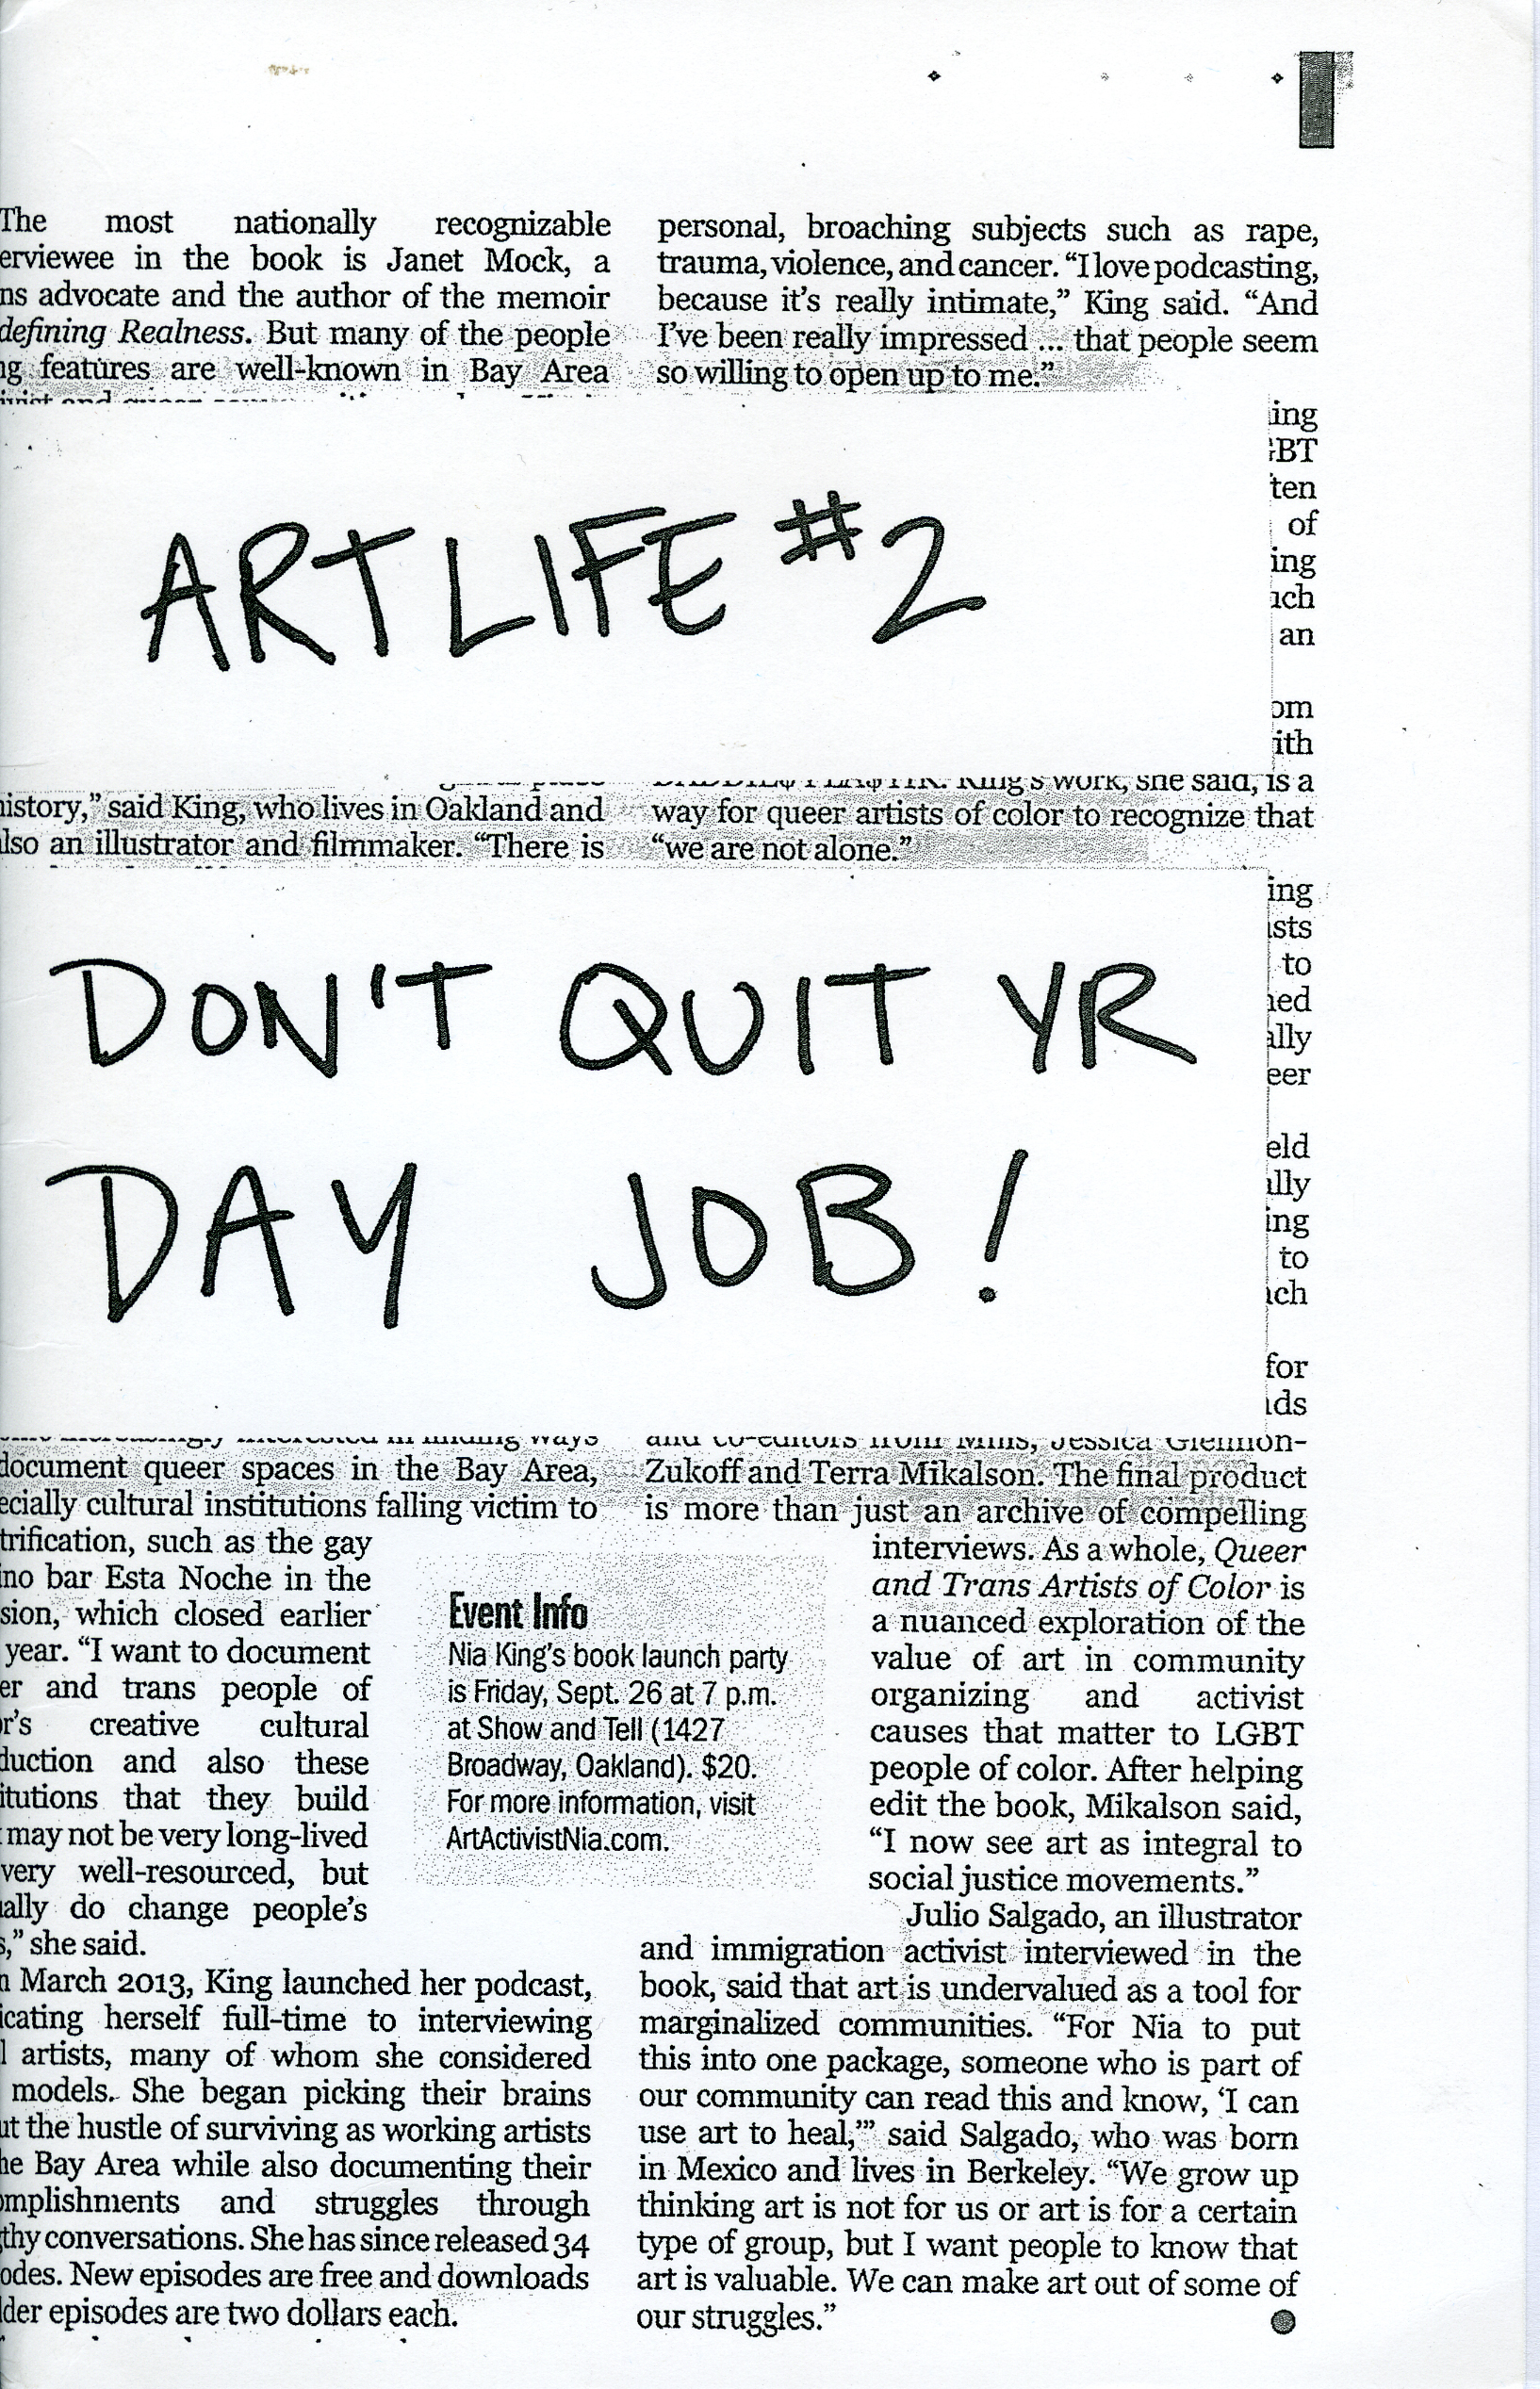 The most nationally recognizable
erviewee in the book is Janet Mock, a
ns advocate and the author of the memoir
defining Realness. But many of the people
g features are well-known in Bay Area
personal, broaching subjects such as rape,
trauma, violence, and cancer. “I love podcasting,
because it’s really intimate,” King said. “And
I’ve been really impressed ... that people seem
so willing to open up to me.”
ing
BT
ten
of
ing
ch
an
om
ith
ART LIFE #2
history,” said King, who lives in Oakland and
lso an illustrator and filmmaker. “There is
King’s work, she said, is a
way for queer artists of color to recognize that
“we are not alone.”
ing
sts
to
ed
ally
eer
eld
ally
ing
to
ch
for
ds
DON'T QUIT YR
DAY JOB!
document queer spaces in the Bay Area,
ecially cultural institutions falling victim to
trification, such as the gay
no bar Esta Noche in the
sion, which closed earlier
year. “I want to document
er and trans people of
r’s creative cultural
duction and also these
itutions that they build
may not be very long-lived
very well-resourced, but
ally do change people’s
s,” she said.
n March 2013, King launched her podcast,
icating herself full-time to interviewing
l artists, many of whom she considered
models. She began picking their brains
ut the hustle of surviving as working artists
he Bay Area while also documenting their
omplishments and struggles through
thy conversations. She has since released 34
odes. New episodes are free and downloads
lder episodes are two dollars each.
Event Info
Nia King’s book launch party
is Friday, Sept. 26 at 7 p.m.
at Show and Tell (1427
Broadway, Oakland). $20.
For more information, visit
ArtActivistNia.com.
and co-editors from Mills, Jessica Glennon-
Zukoff and Terra Mikalson. The final product
is more than just an archive of compelling
interviews. As a whole, Queer
and Trans Artists of Color is
a nuanced exploration of the
value of art in community
organizing and activist
causes that matter to LGBT
people of color. After helping
edit the book, Mikalson said,
“I now see art as integral to
social justice movements.”
Julio Salgado, an illustrator
and immigration activist interviewed in the
book, said that art is undervalued as a tool for
marginalized communities. “For Nia to put
this into one package, someone who is part of
our community can read this and know, ‘I can
use art to heal,’” said Salgado, who was born
in Mexico and lives in Berkeley. “We grow up
thinking art is not for us or art is for a certain
type of group, but I want people to know that
art is valuable. We can make art out of some of
our struggles.”